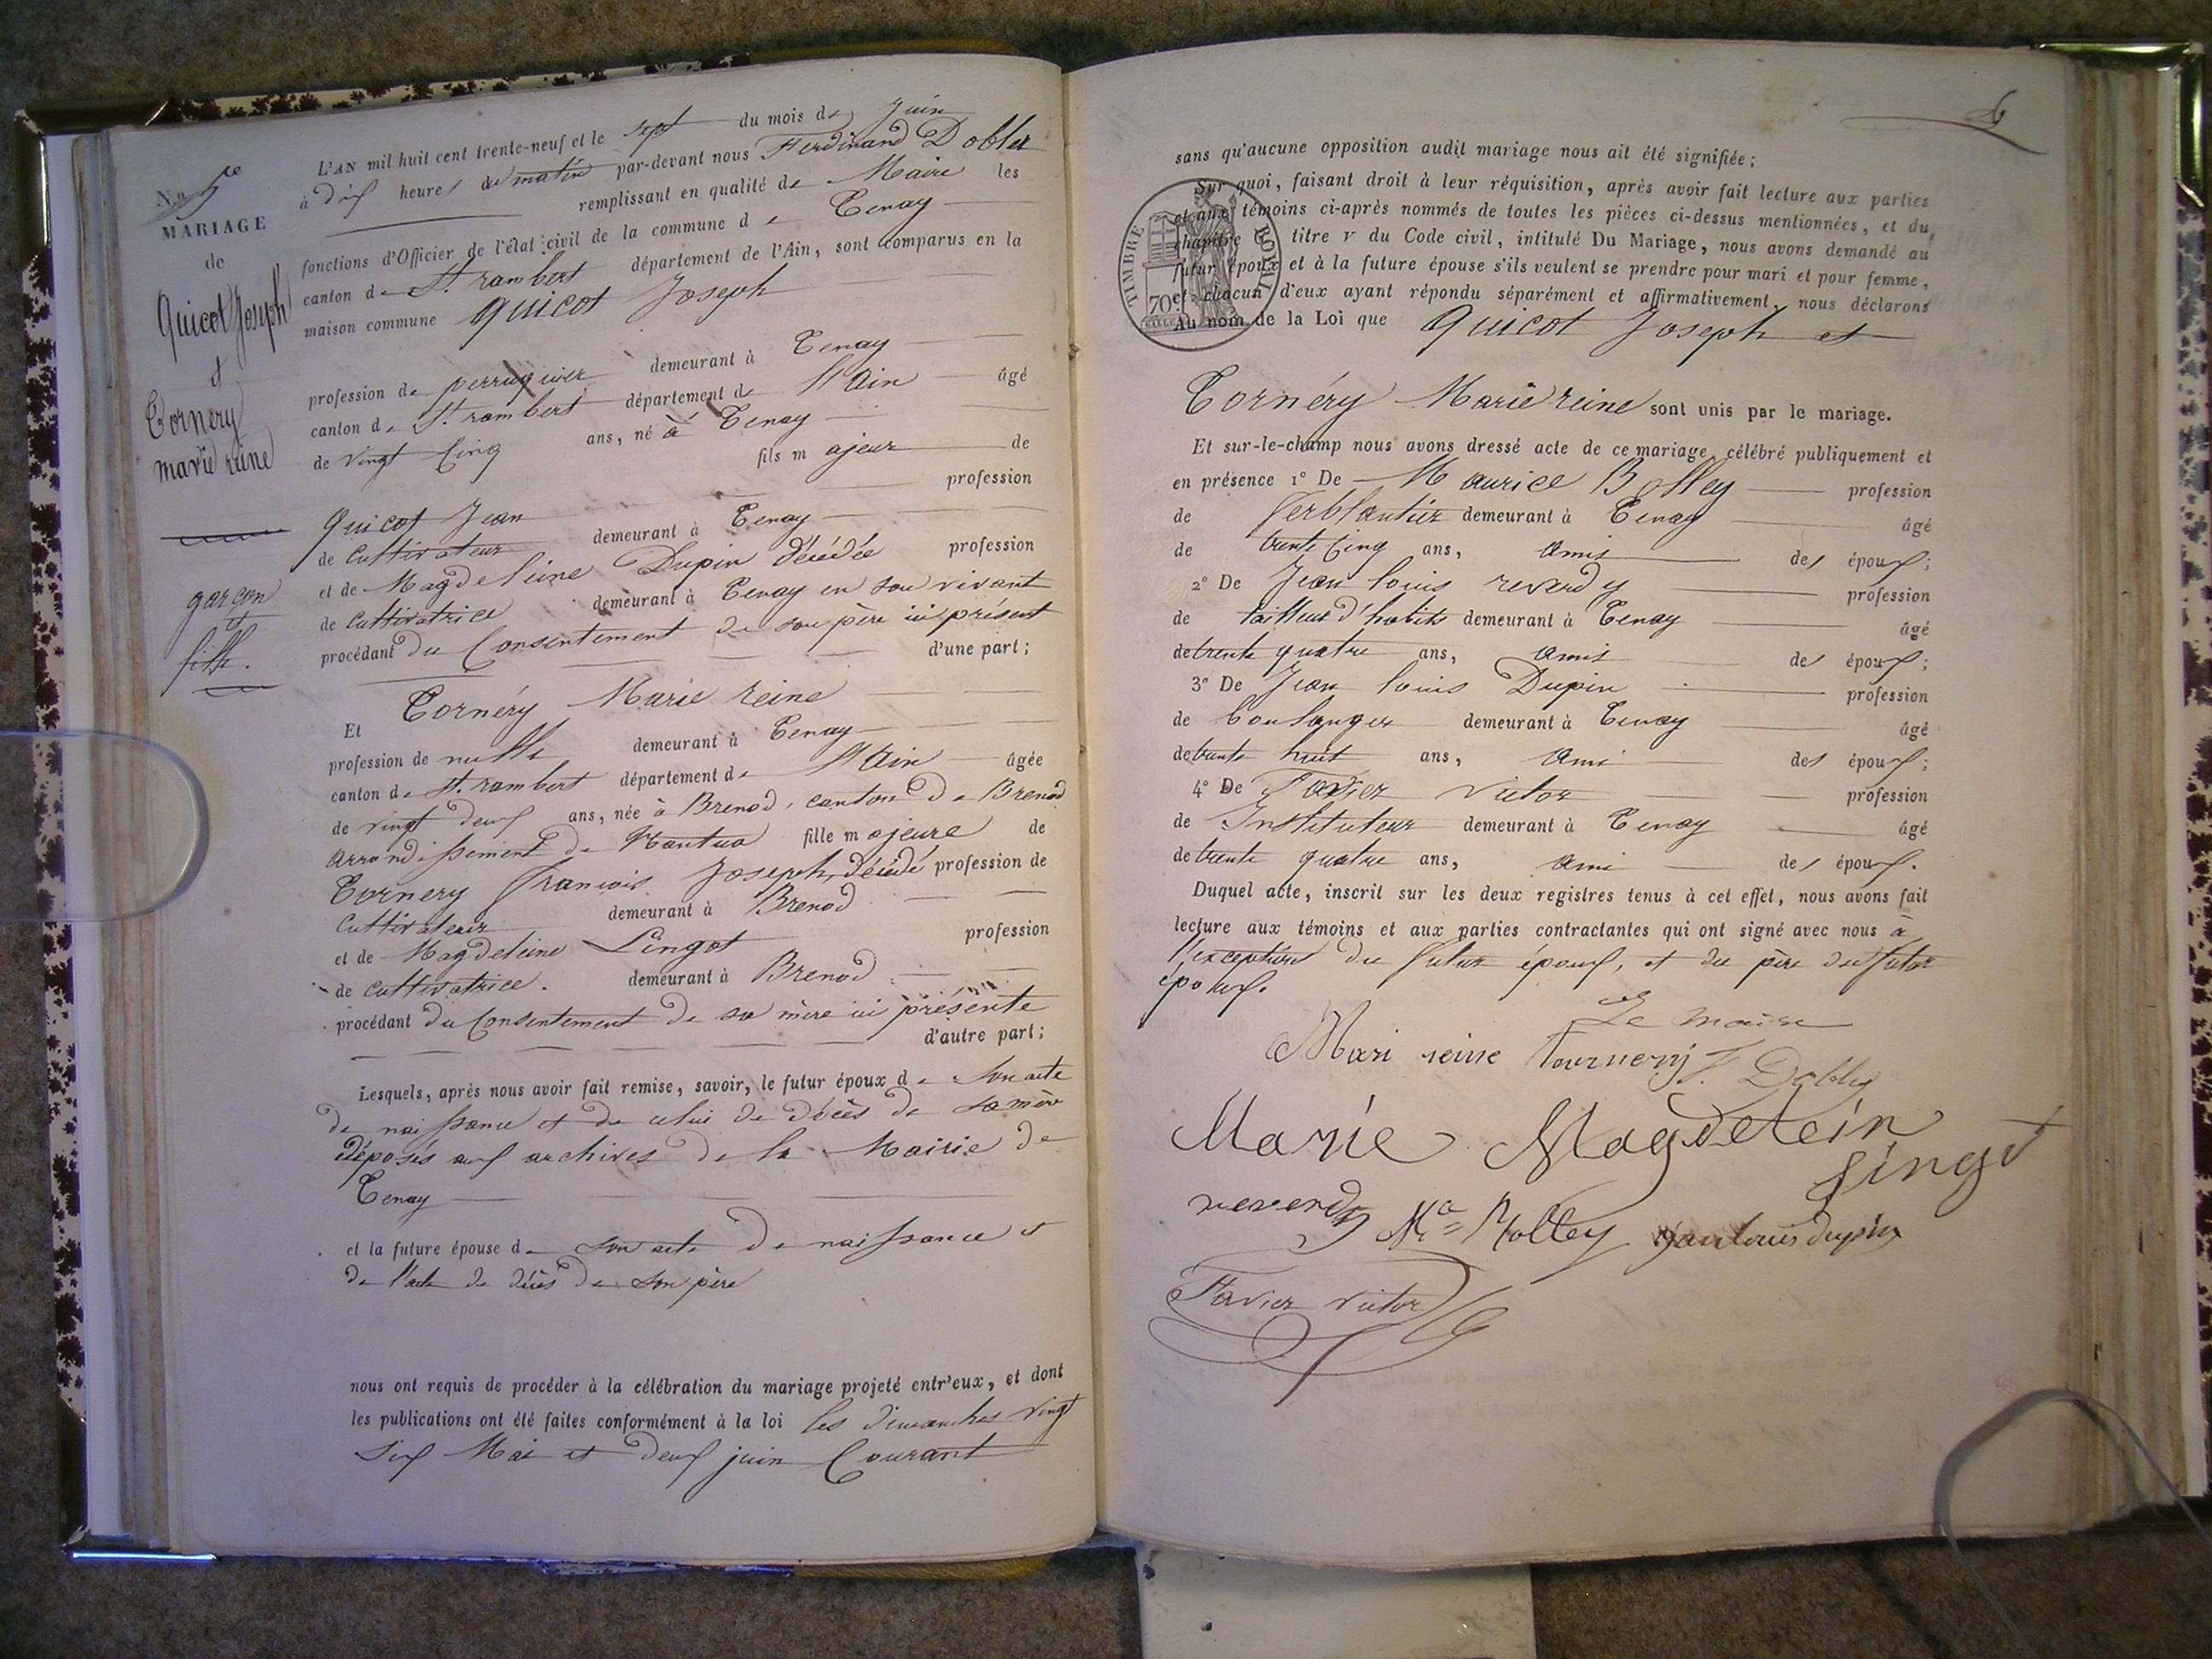 N.o 5e
MARIAGE
de
Quicot Joseph
et
Tornéry
marie reine
garçon
et
fille.
L'AN mil huit cent trente-neuf et le sept du mois de Juin
à dix heures du matin par-devant nous Ferdinand Dobler
remplissant en qualité de Maire les
fonctions d'Officier de l'état civil de la commune de Tenay
canton de St. rambert département de l'Ain, sont comparus en la
maison commune Quicot Joseph
profession de perruquier demeurant à Tenay
canton de St. rambert département de l'Ain âgé
de vingt cinq ans, né à Tenay
fils majeur de
Quicot Jean profession
de Cultivateur demeurant à Tenay
et de Magdeleine Dupin décédée profession
de Cultivatrice demeurant à Tenay en son vivant
procédant du Consentement de son père ici présent
d'une part;
Et Tornéry Marie reine
profession de nulle demeurant à Tenay
canton de St. rambert département de l'Ain âgée
de vingt deux ans, née à Brenod, canton de Brenod
arrondissement de Nantua fille majeure de
Tornery François Joseph, décédé profession de
Cultivateur demeurant à Brenod
et de Magdeleine Lingot profession
de Cultivatrice. demeurant à Brenod
procédant du Consentement de sa mère ici présente
d'autre part;
Lesquels, après nous avoir fait remise, savoir, le futur époux de son acte
de naissance et de celui de décès de sa mère
déposés aux archives de la Mairie de
Tenay
et la future épouse de son acte de naissance et
de l'acte de décès de son père
nous ont requis de procéder à la célébration du mariage projeté entr'eux, et dont
les publications ont été faites conformément à la loi les dimanches vingt
six Mai et deux juin Courant
sans qu'aucune opposition audit mariage nous ait été signifiée;
Sur quoi, faisant droit à leur réquisition, après avoir fait lecture aux parties
et aux témoins ci-après nommés de toutes les pièces ci-dessus mentionnées, et du
chapitre 6 titre v du Code civil, intitulé Du Mariage, nous avons demandé au
futur époux et à la future épouse s'ils veulent se prendre pour mari et pour femme,
et chacun d'eux ayant répondu séparément et affirmativement, nous déclarons
Au nom de la Loi que Quicot Joseph et
TIMBRE ROYAL
70c
Tornéry Marie reine sont unis par le mariage.
Et sur-le-champ nous avons dressé acte de ce mariage, célébré publiquement et
en présence 1º De Maurice Bolley profession
de ferblantier demeurant à Tenay âgé
de trente cinq ans, amis des époux;
2º De Jean louis reverdy profession
de tailleur d'habits demeurant à Tenay âgé
de trente quatre ans, amis des époux;
3º De Jean louis Dupin profession
de boulanger demeurant à Tenay âgé
de trente huit ans, ami des époux;
4º De Favier Victor profession
de Instituteur demeurant à Tenay âgé
de trente quatre ans, ami des époux.
Duquel acte, inscrit sur les deux registres tenus à cet effet, nous avons fait
lecture aux témoins et aux parties contractantes qui ont signé avec nous à
l'exception du futur époux, et du père du futur
époux.
Le maire
Mari reine Tournery F. Dobler
Marie Magdelein
Lingot
reverdy Mce Bolley Jean louis dupin
Favier Victor